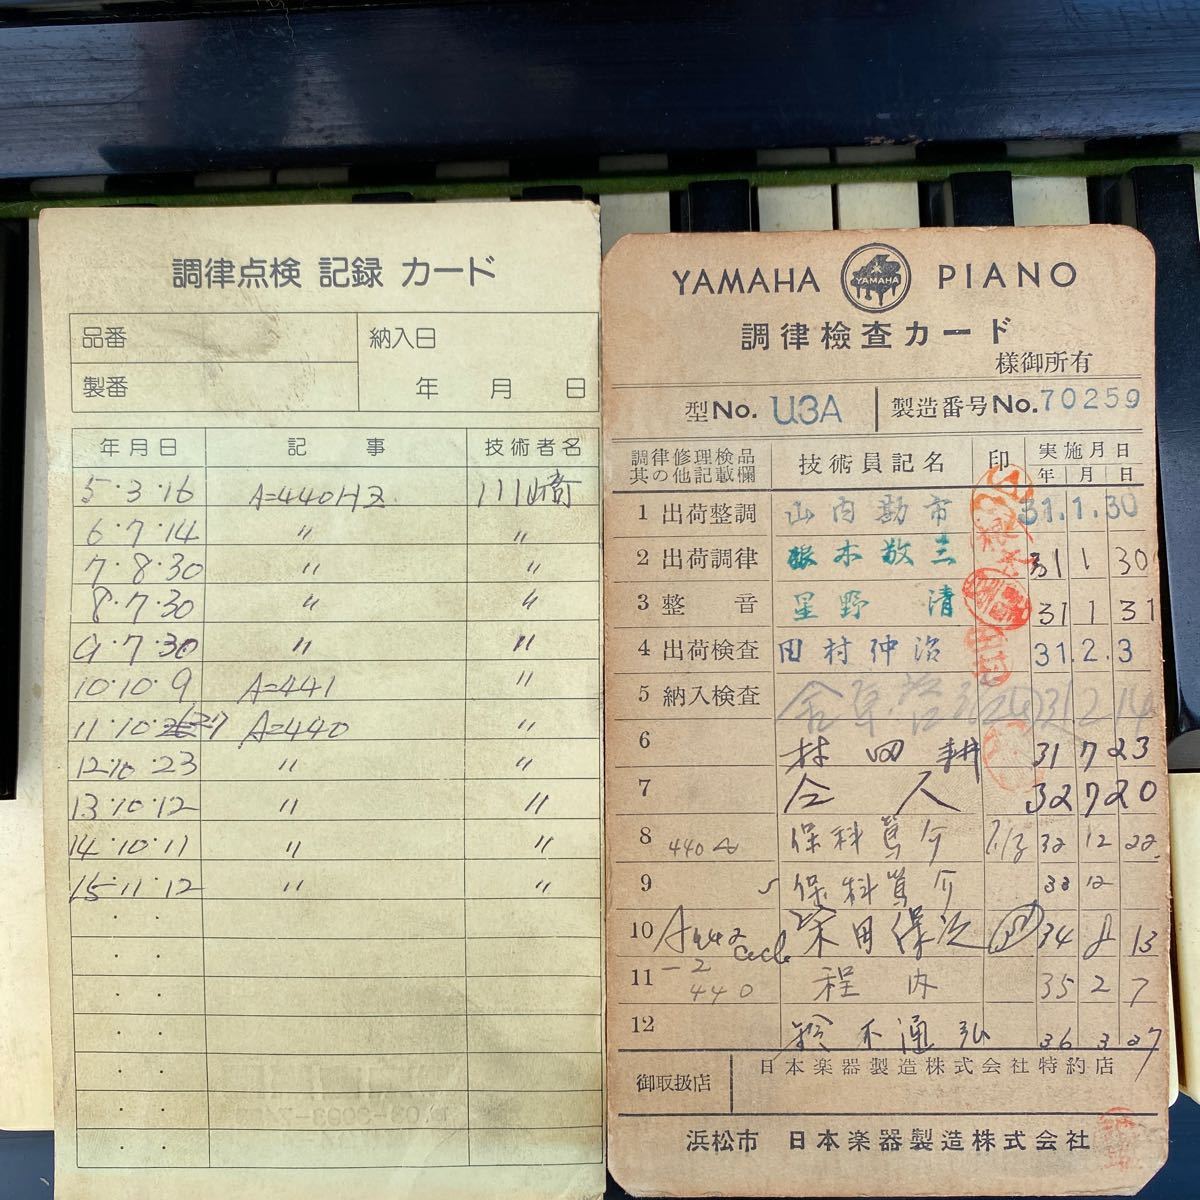 調律点検 記録 カード
品番
納入日
製番
年 月 日
年月日 記事 技術者名
5・3・16 A=440HZ 川崎
6・7・14 〃 〃
7・8・30 〃 〃
8・7・30 〃 〃
9・7・30 〃 〃
10・10・9 A=441 〃
11・10・27 A=440 〃
12・10・23 〃 〃
13・10・12 〃 〃
14・10・11 〃 〃
15・11・12 〃 〃
YAMAHA YAMAHA PIANO
調律檢査カード
様御所有
型No. U3A 製造番号No. 70259
調律修理検品
其の他記載欄
技術員記名 印 実施月日
年 月 日
1 出荷整調 山内勘市 31.1.30
2 出荷調律 木敬三 31 1 30
3 整音 星野清 31 1 31
4 出荷検査 田村仲治 31.2.3
5 納入検査 31 2 14
6 村田耕 31 7 23
7 仝人 32 7 20
8 440 保科篤介 32 12 22
9 保科篤介 33 12
10 A 442 cycle 田保次 34 8 13
11 -2 440 35 2 7
12 鈴木通弘 36 3 27
御取扱店 日本楽器製造株式会社特約店
浜松市 日本楽器製造株式会社